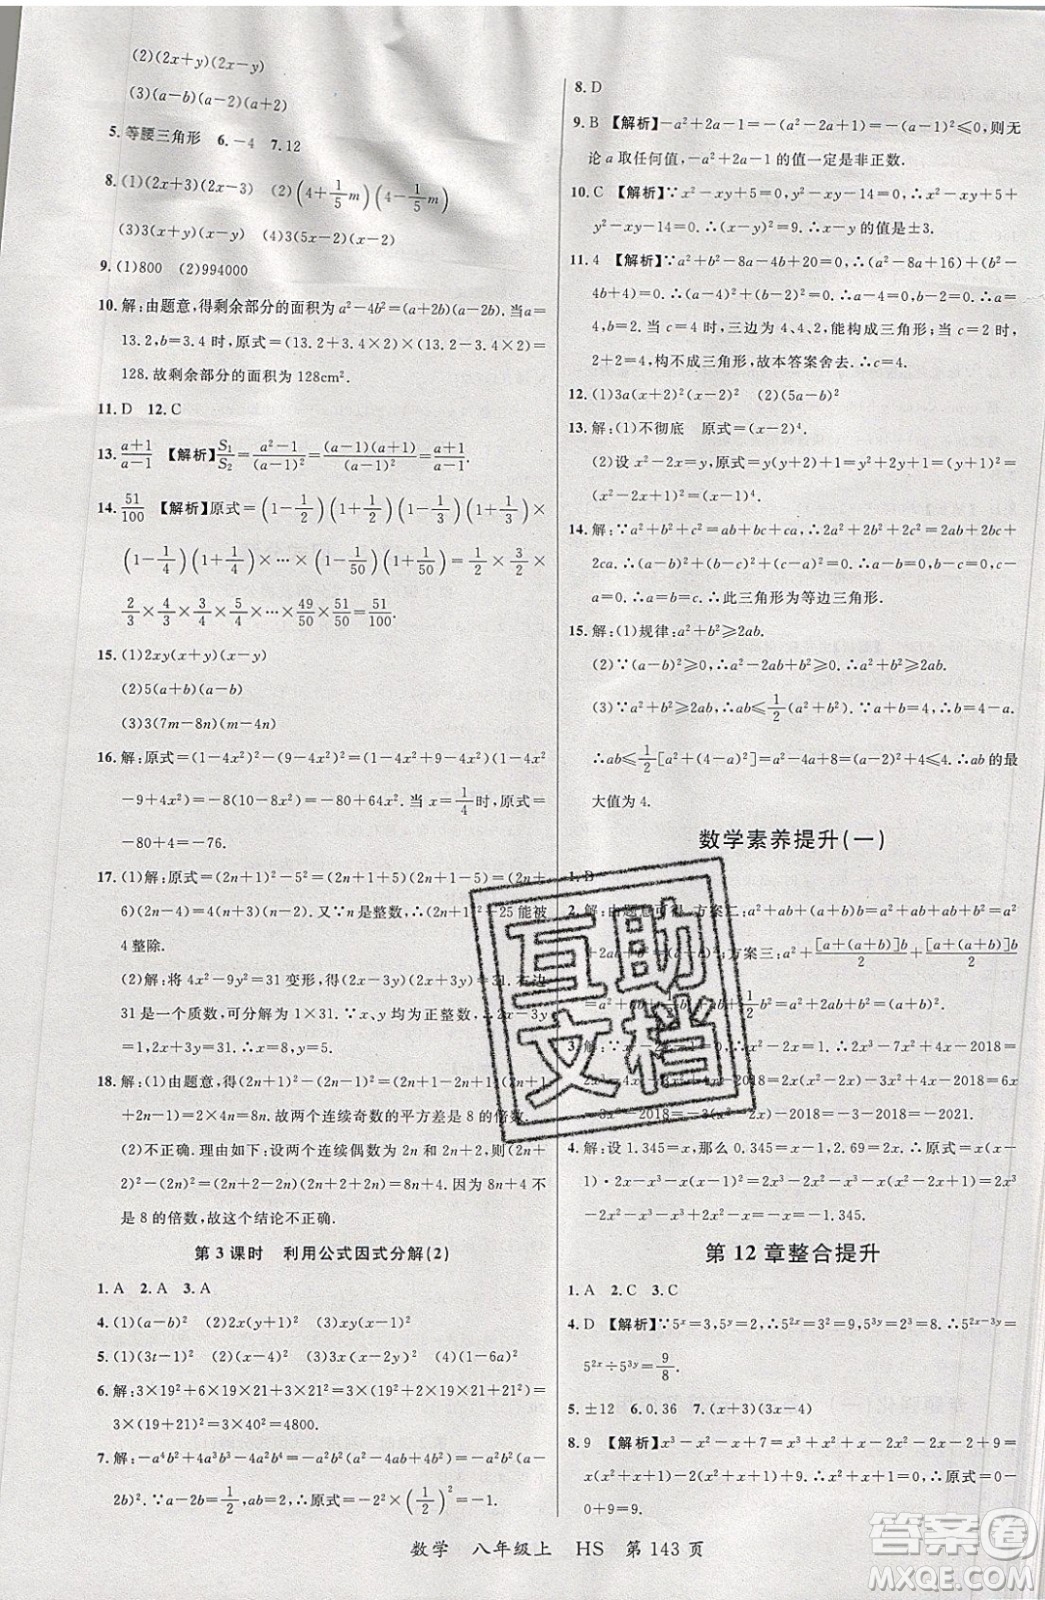 (2)(2x+y)(2x-y)
(3)(a-b)(a-2)(a+2)
5. 等腰三角形 6. -4 7. 12
8. (1)(2x+3)(2x-3) (2)(4+1/5m)(4-1/5m)
(3)3(x+y)(x-y) (4)3(5x-2)(x-2)
9. (1)800 (2)994000
10. 解:由题意,得剩余部分的面积为a²-4b²=(a+2b)(a-2b).当a=
13.2,b=3.4时,原式=(13.2+3.4×2)(13.2-3.4×2)=20×6.4=
128.故剩余部分的面积为128cm².
11. D 12. C
13. (a+1)/(a-1) 【解析】S₁/S₂=(a²-1)/(a-1)²=(a-1)(a+1)/(a-1)²=(a+1)/(a-1).
14. 51/100 【解析】原式=(1-1/2)(1+1/2)(1-1/3)(1+1/3)×
(1-1/4)(1+1/4)×…×(1-1/50)(1+1/50)=1/2×3/2×
2/3×4/3×3/4×5/4×…×49/50×51/50=51/100.
15. (1)2xy(x+y)(x-y)
(2)5(a+b)(a-b)
(3)3(7m-8n)(m-4n)
16. 解:原式=(1-4x²)²-(9-4x²)²=(1-4x²+9-4x²)(1-4x²
-9+4x²)=-8(10-8x²)=-80+64x².当x=1/4时,原式=
-80+4=-76.
17. (1)解:原式=(2n+1)²-5²=(2n+1+5)(2n+1-5)=(2n+
6)(2n-4)=4(n+3)(n-2).又∵n是整数,∴(2n+1)²-25能被
4整除.
(2)解:将4x²-9y²=31变形,得(2x+3y)(2x-3y)=31.右边
31是一个质数,可分解为1×31.∵x、y均为正整数,∴2x-3y
=1,2x+3y=31.∴x=8,y=5.
18. 解:(1)由题意,得(2n+1)²-(2n-1)²=(2n+1-2n+1)(2n+
1+2n-1)=2×4n=8n.故两个连续奇数的平方差是8的倍数.
(2)不正确.理由如下:设两个连续偶数为2n和2n+2,则(2n+
2)²-(2n)²=(2n+2-2n)(2n+2+2n)=8n+4.因为8n+4不
是8的倍数,故这个结论不正确.
第3课时 利用公式因式分解(2)
1. A 2. A 3. A
4. (1)(a-b)² (2)2x(y+1)² (3)xy(x-1)²
5. (1)(3t-1)² (2)(x-4)² (3)(x+y-2)² (4)(1-6a)²
6. 解:3×19²+6×19×21+3×21²=3(19²+2×19×21+21²)=
3×(19+21)²=3×40²=4800.
7. 解:-a⁴b²+4a³b³-4a²b⁴=-a²b²(a²-4ab+4b²)=-a²b²(a-
2b)².∵a-2b=1/2,ab=2,∴原式=-2²×(1/2)²=-1.
8. D
9. B 【解析】-a²+2a-1=-(a²-2a+1)=-(a-1)²≤0,则无
论a取任何值,-a²+2a-1的值一定是非正数.
10. C 【解析】∵x²-xy=4+5,y²-xy=4,∴x²-xy+
y²-xy=9,即x²-2xy+y²=9,∴(x-y)²=9.∴x-y的值是±3.
11. 4 【解析】∵a²+b²-8a-4b+20=0,∴(a²-8a+16)+(b²-
4b+4)=0.∴(a-4)²+(b-2)²=0.∴a-4=0,b-2=0.∴a=
4,b=2.当c=4时,三边为4、4、2,能构成三角形;当c=2时,
2+2=4,构不成三角形,故本答案舍去.∴c=4.
12. (1)3a(x+2)²(x-2)² (2)(5a-b)²
13. 解:(1)不彻底 原式=(x-2)⁴.
(2)设x²-2x=y,原式=y(y+2)+1=y²+2y+1=(y+1)²=
(x²-2x+1)²=(x-1)⁴.
14. 解:∵a²+b²+c²=ab+bc+ca,∴2a²+2b²+2c²=2ab+2bc+
2ca.∴(a-b)²+(b-c)²+(c-a)²=0.∴a-b=0,b-c=0,c-a
=0.∴a=b=c.∴此三角形为等边三角形.
15. 解:(1)规律:a²+b²≥2ab.
(2)∵(a-b)²≥0,∴a²-2ab+b²≥0.∴a²+b²≥2ab.
(3)∵a²+b²≥2ab,∴ab≤1/2(a²+b²).∵a+b=4,∴b=4-a.
∴ab≤1/2[a²+(4-a)²]=a²-4a+8=(a-2)²+4.∴ab的最
大值为4.
数学素养提升(一)
1. D
2. 解:由题意可得,方案二:a²+ab+(a+b)b=a²+ab+ab+b²=a²
+2ab+b²=(a+b)²;方案三:a²+[a+(a+b)]b/2+[a+(a+b)]b/2
=a²+ab+1/2b²+ab+1/2b²=a²+2ab+b²=(a+b)².
2018=2x·x²-7x²+4x-2018=6x
-3x²-2018=-3(x²-2x)-2018=-3-2018=-2021.
4. 解:设1.345=x,那么0.345=x-1,2.69=2x.∴原式=x(x-
1)·2x-x³-x(x-1)²=2x³-2x²-x³-x(x²-2x+1)=2x³
-2x²-x³-x³+2x²-x=-x=-1.345.
第12章整合提升
1. A 2. C 3. C
4. D 【解析】∵5ˣ=3,5ʸ=2,∴5²ˣ=3²=9,5³ʸ=2³=8.∴5²ˣ⁻³ʸ=
5²ˣ÷5³ʸ=9/8.
5. ±12 6. 0.36 7. (x+3)(3x-4)
8. 9 【解析】x³-x²-x+7=x³+x²-x-2x²-2x+2+9=
x(x²+x-1)-2(x²+x-1)+9.∵x²+x=1,∴原式=0-
0+9=9.
数学 八年级上 HS 第143页
互助文档
答案圈
MXQE.COM